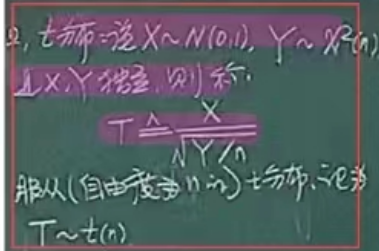 2, t分布:设X~N(0,1), Y~χ²(n)
且X,Y独立,则称
T ≜ X / √(Y/n)
服从(自由度为n的)t分布,记为
T~t(n)